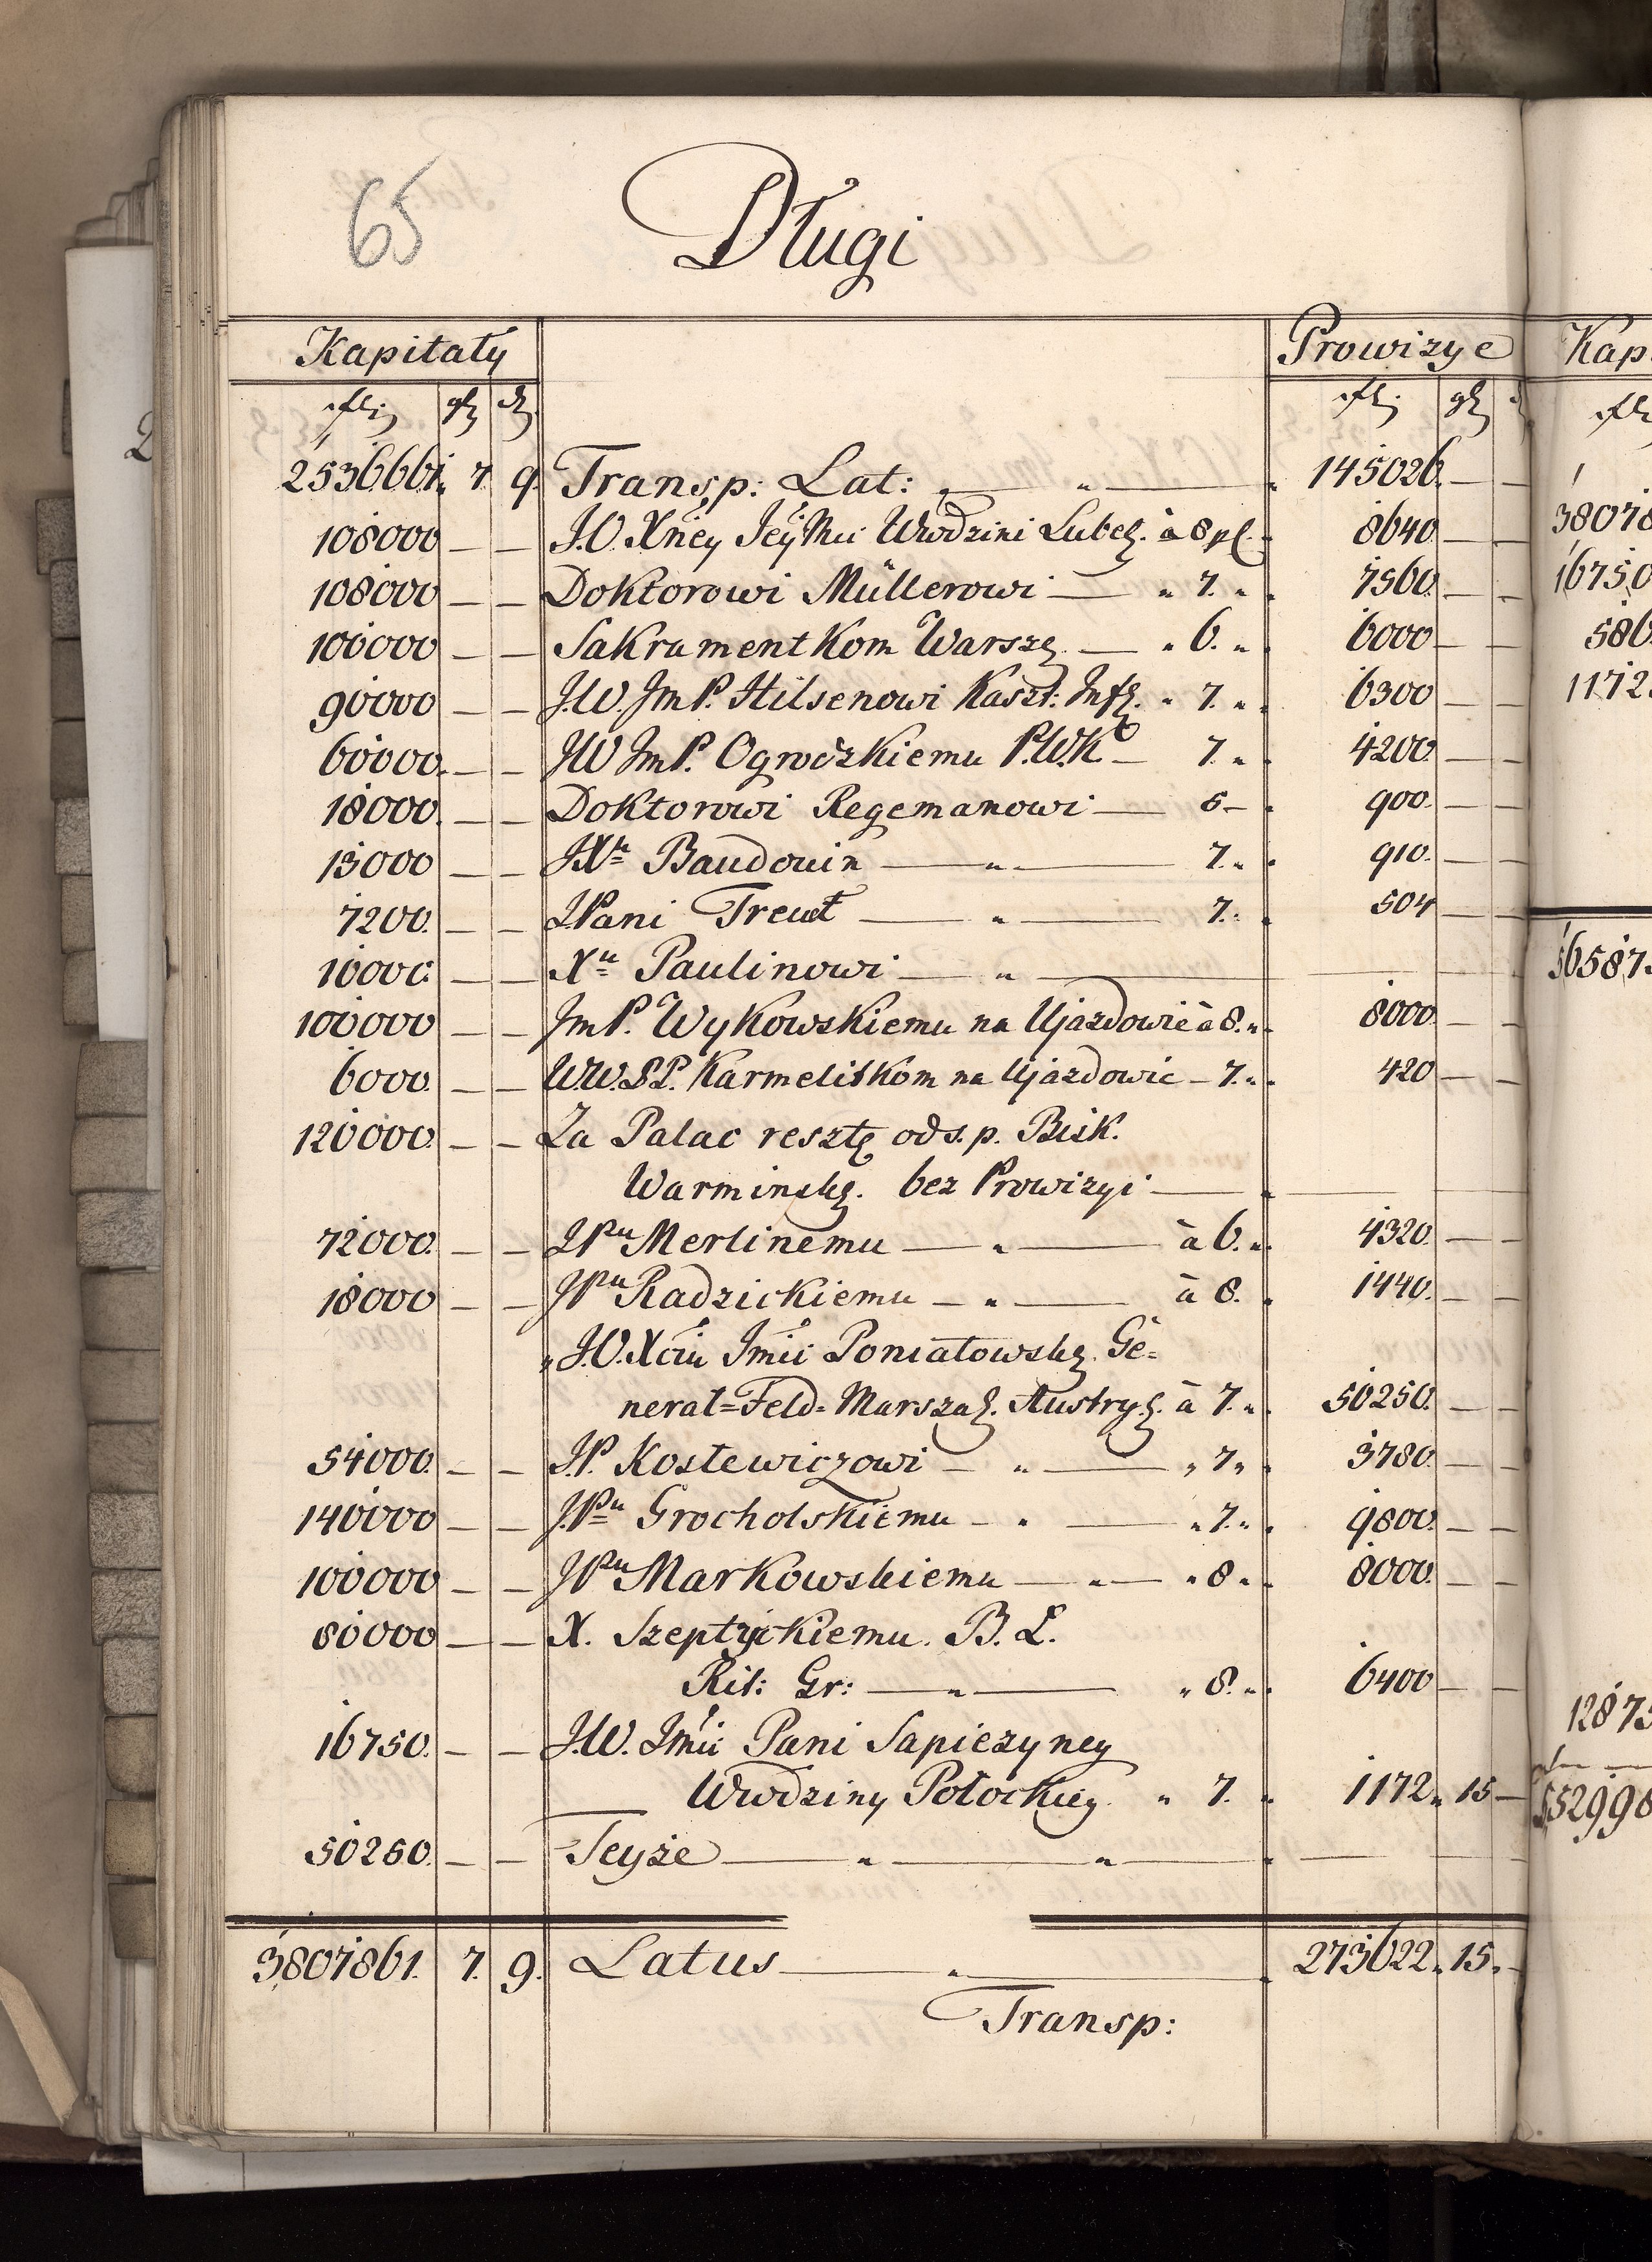 65
Długi
Kapitały Prowizye Kap
fl: gr d fl: gr fl
2536661. 7 9. Transp: Lat: — " — 145026. — —
108000 — — J.O. Xney JeyMci Wwodzini Lubel. à 8 pC. 8640 — —
108000 — — Doktorowi Müllerowi — " 7. " 7560. — —
100000 — — Sakramentkom Warszę. — " 6. " 6000 — —
90000 — — J.W. JmP. Hilsenowi Kaszt: Infl. " 7. " 6300 — —
60000. — — JW JmP. Ogrodzkiemu P.W.K. — 7. " 4200 — —
18000. — — Doktorowi Regemanowi — 5 — 900. — —
13000 — — JXu Baudouin — " — 7. " 910. — —
7200. — — JPani Treutt — " — 7. 504 — —
10000 — — Xu Paulinowi — " —
100000 — — JmP. Wykowskiemu na Ujazdowie à 8. " 8000. — —
6000. — — WW.PP. Karmelitkom na Ujazdowie — 7. " 420 — —
120000. — — Za Palac resztę od s. p. Bisk.
Warmińskę. bez Prowizyi —
72000. — — JPu Merlinemu — " — à 6. " 4320. — —
18000 — — JPu Radzickiemu — " — à 8. 1440. — —
" J.O. Xciu Jmci Poniatowskę. Ge=
nerał=Feld=Marszał. Austry. à 7. " 50250. — —
54000. — — J.P. Kostewiczowi — " — " 7 " 3780. — —
140000 — — J.Pu Grocholskiemu — " — " 7. " 9800. — —
100000 — — JPu Markowskiemu — " — " 8 " 8000. — —
80000 — — X. Szeptyckiemu. B. Ł.
Rit: Gr: — " — " 8. " 6400 — —
16750. — — J.W. Jmci Pani Sapiezyney
Wwodziny Połockiey. " 7. " 1172 " 15 —
50250. — — Teyże — " — " —
3807861. 7. 9. Latus — " — 273622. 15.
Transp: